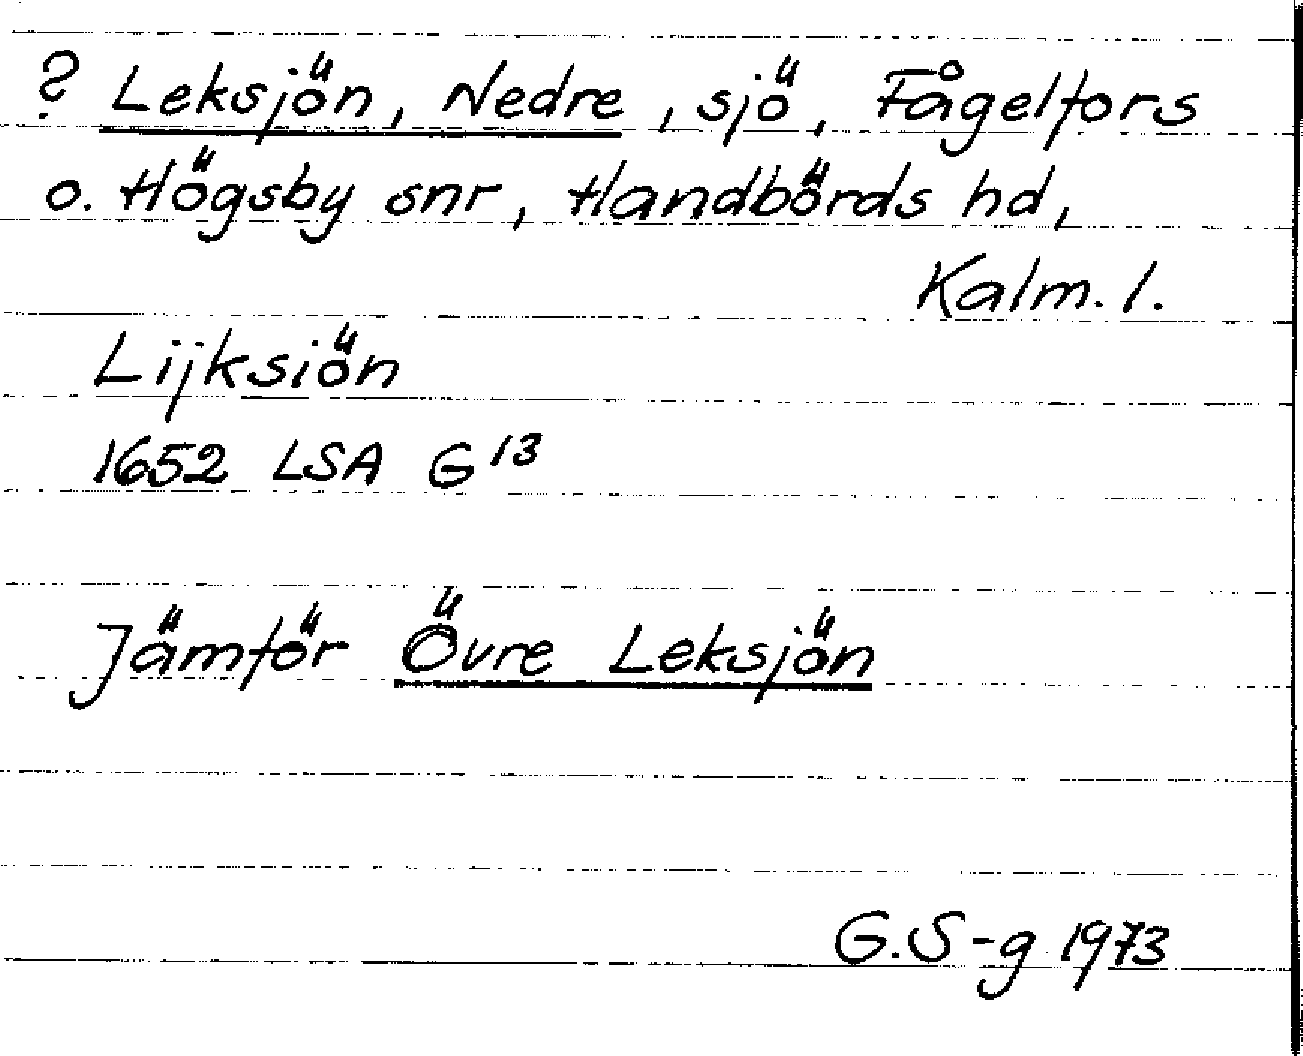 ? Leksjön, Nedre, sjö, Fågelfors
o. Högsby snr, Handbörds hd,
Kalm. l.
Lijksiön
1652 LSA G 13
Jämför Övre Leksjön
G.S-g 1973